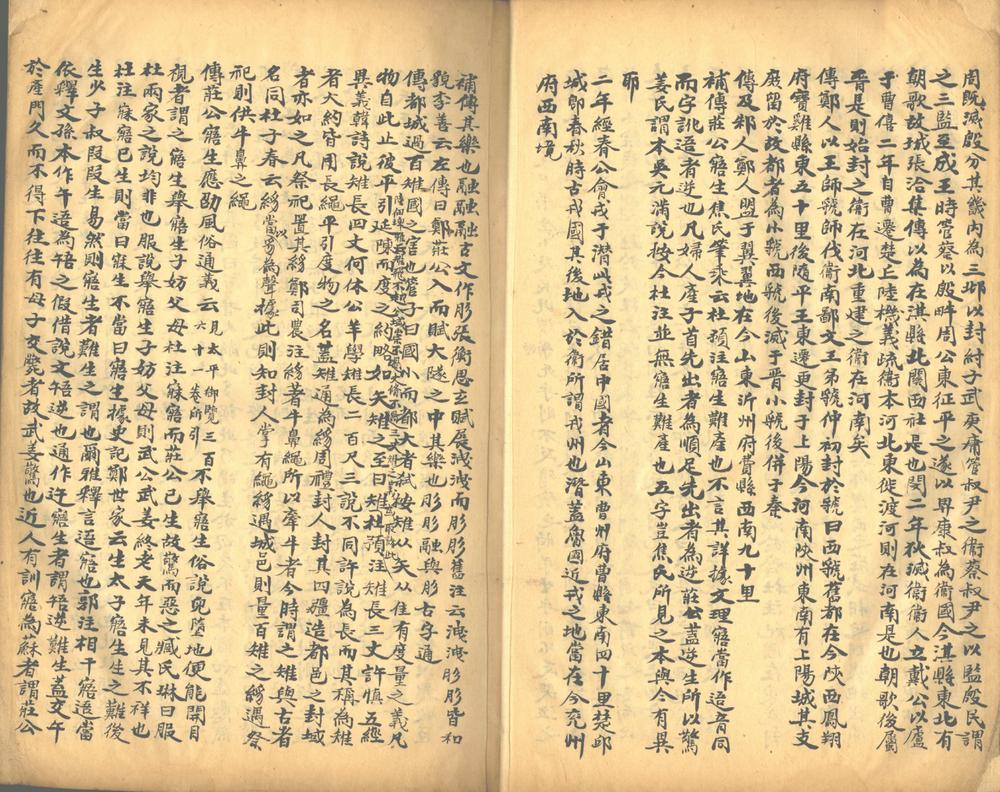 周既滅殷分其畿內為三邶以封紂子武庚庸管叔尹之衞蔡叔尹之以監殷民謂
之三監至成王時管蔡以殷畔周公東征平之遂以畀康叔為衞國今淇縣東北有
朝歌故城張洽集傳以為在淇縣北關西社是也閔二年狄滅衞衞人立戴公以廬
于曹僖二年自曹遷楚丘陸機義疏衞本河北東徙渡河則在河南是也朝歌後屬
晉是則始封之衞在河北重建之衞在河南矣
傳鄭人以王師虢師伐衞南鄙文王弟虢仲初封於虢曰西虢舊都在今陝西鳳翔
府寶雞縣東五十里後隨平王東遷更封于上陽今河南陝州東南有上陽城其支
庶留於故都者為小虢西虢後滅于晉小虢後併于秦
傳及邾人鄭人盟于翼翼地在今山東沂州府費縣西南九十里
補傳莊公寤生焦氏筆乘云杜預注寤生難產也不言其詳據文理寤當作逜音同
而字訛逜者逆也凡婦人產子首先出者為順足先出者為逆莊公蓋逆生所以驚
姜氏謂本吳元滿說按今杜注並無寤生難產也五字豈焦氏所見之本與今有異
耶
二年經春公會戎于潛此戎之錯居中國者今山東曹州府曹縣東南四十里楚邱
城卽春秋時古戎國其後地入於衞所謂戎州也潛蓋魯國近戎之地當在今兗州
府西南境
補傳其樂也融融融古文作肜張衡思玄賦展洩洩而肜肜舊注云洩洩肜肜皆和
貌李善云左傳曰鄭莊公入而賦大隧之中其樂也肜肜融與肜古字通
傳都城過百雉國之害也管子曰國小而都大者弒按雉以矢從隹有度量之義凡
物自此止彼平引延陳而度之約略如矢雉之至曰雉杜預注雉長三丈許慎五經
異義韓詩說雉長四丈何休公羊學雉長二百尺三說不同許說為長而其稱為雉
者大約皆用長繩平引度物之名蓋雉通為絼周禮封人封其四疆造都邑之封域
者亦如之凡祭祀置其絼鄭司農注絼著牛鼻繩所以牽牛者今時謂之雉與古者
名同杜子春云絼當以豸為聲據此則知封人掌有繩絼遇城邑則量百雉之絼遇祭
祀則供牛鼻之繩
傳莊公寤生應劭風俗通義云見太平御覽三百六十一卷所引不舉寤生俗說兒墮地便能開目
視者謂之寤生舉寤生子妨父母杜注寐寤而莊公已生故驚而惡之臧氏琳曰服
杜兩家之說均非也服說舉寤生子妨父母則武公武姜終老天年未見其不祥也
杜注寐寤已生則當曰寐生不當曰寤生據史記鄭世家云生太子寤生生之難後
生少子叔段段生易然則寤生者難生之謂也爾雅釋言逜寤也郭注相干寤逜當
依釋文孫本作午逜為啎之假借說文啎逆也通作迕寤生者謂啎逆難生蓋交午
於產門久而不得下往往有母子交斃者故武姜驚也近人有訓寤為蘇者謂莊公